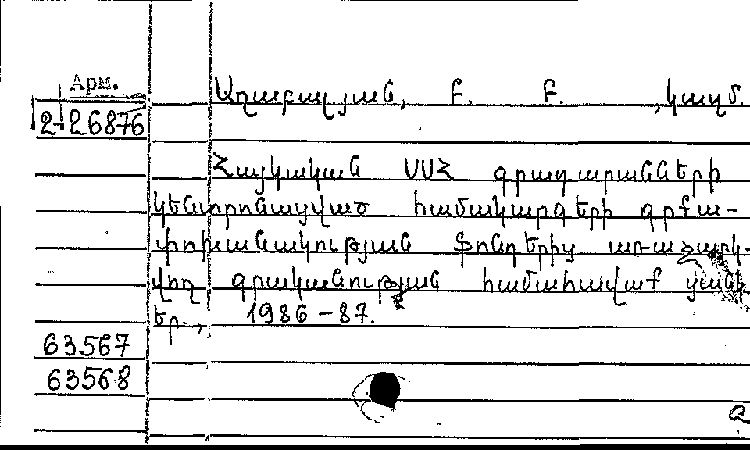 Арм.
2-26876
Աղաբալյան, Բ. Բ. , կազմ.
Հայկական ՍՍՀ գրադարանների
կենտրոնացված համակարգերի գրքա-
փոխանակության ֆոնդերից առաջարկ-
վող գրականության համահավաք ցանկ
եր., 1986-87.
63567
63568